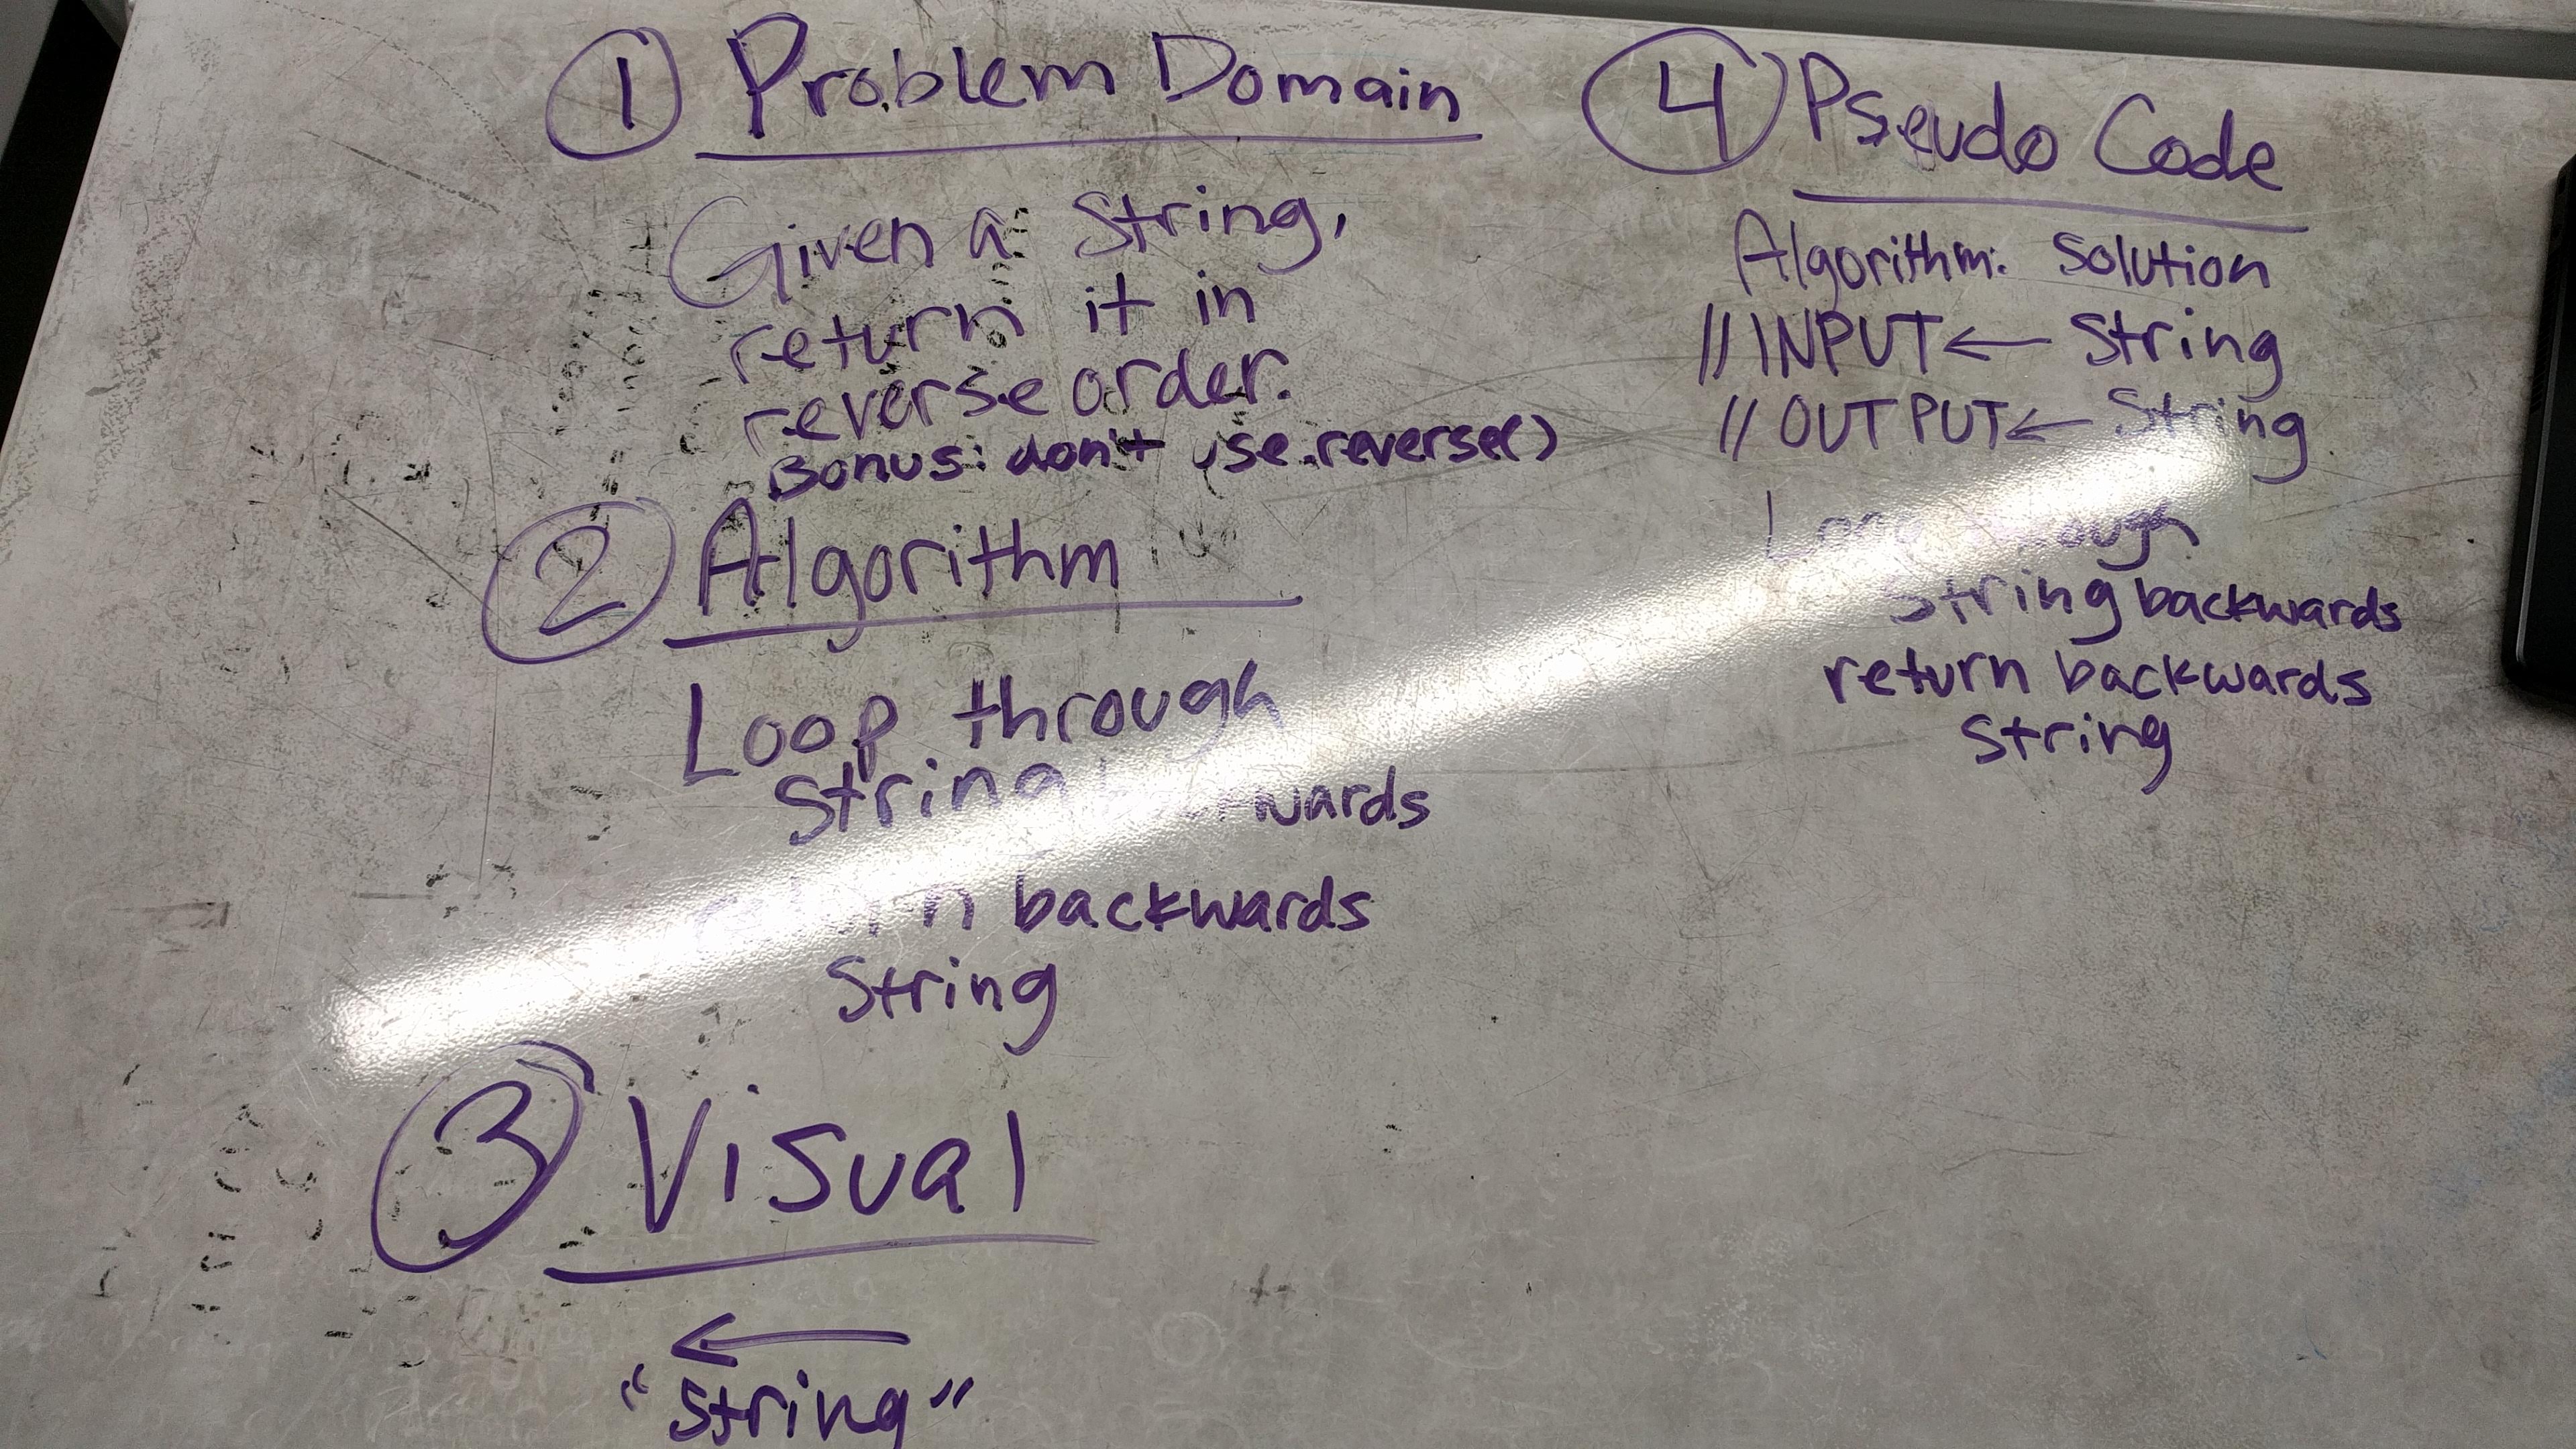 ① Problem Domain
Given a String,
return it in
reverse order.
Bonus: don't use .reverse()
② Algorithm
Loop through
String backwards
return backwards
String
③ Visual
←
"String"
④ Pseudo Code
Algorithm: Solution
// INPUT ← String
// OUTPUT ← String
Loop through
String backwards
return backwards
String